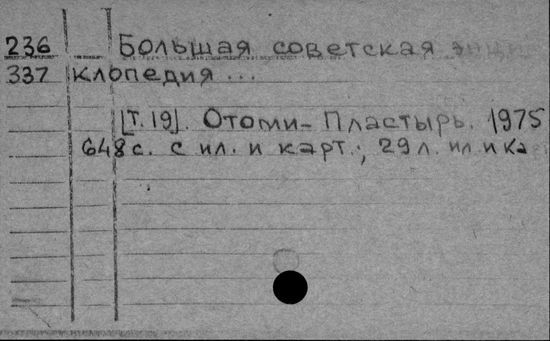 236 Большая советская энци
337 клопедия ...
[Т. 19]. Отоми-Пластырь. 1975
648 с. с ил. и карт.; 29 л. ил. и ка